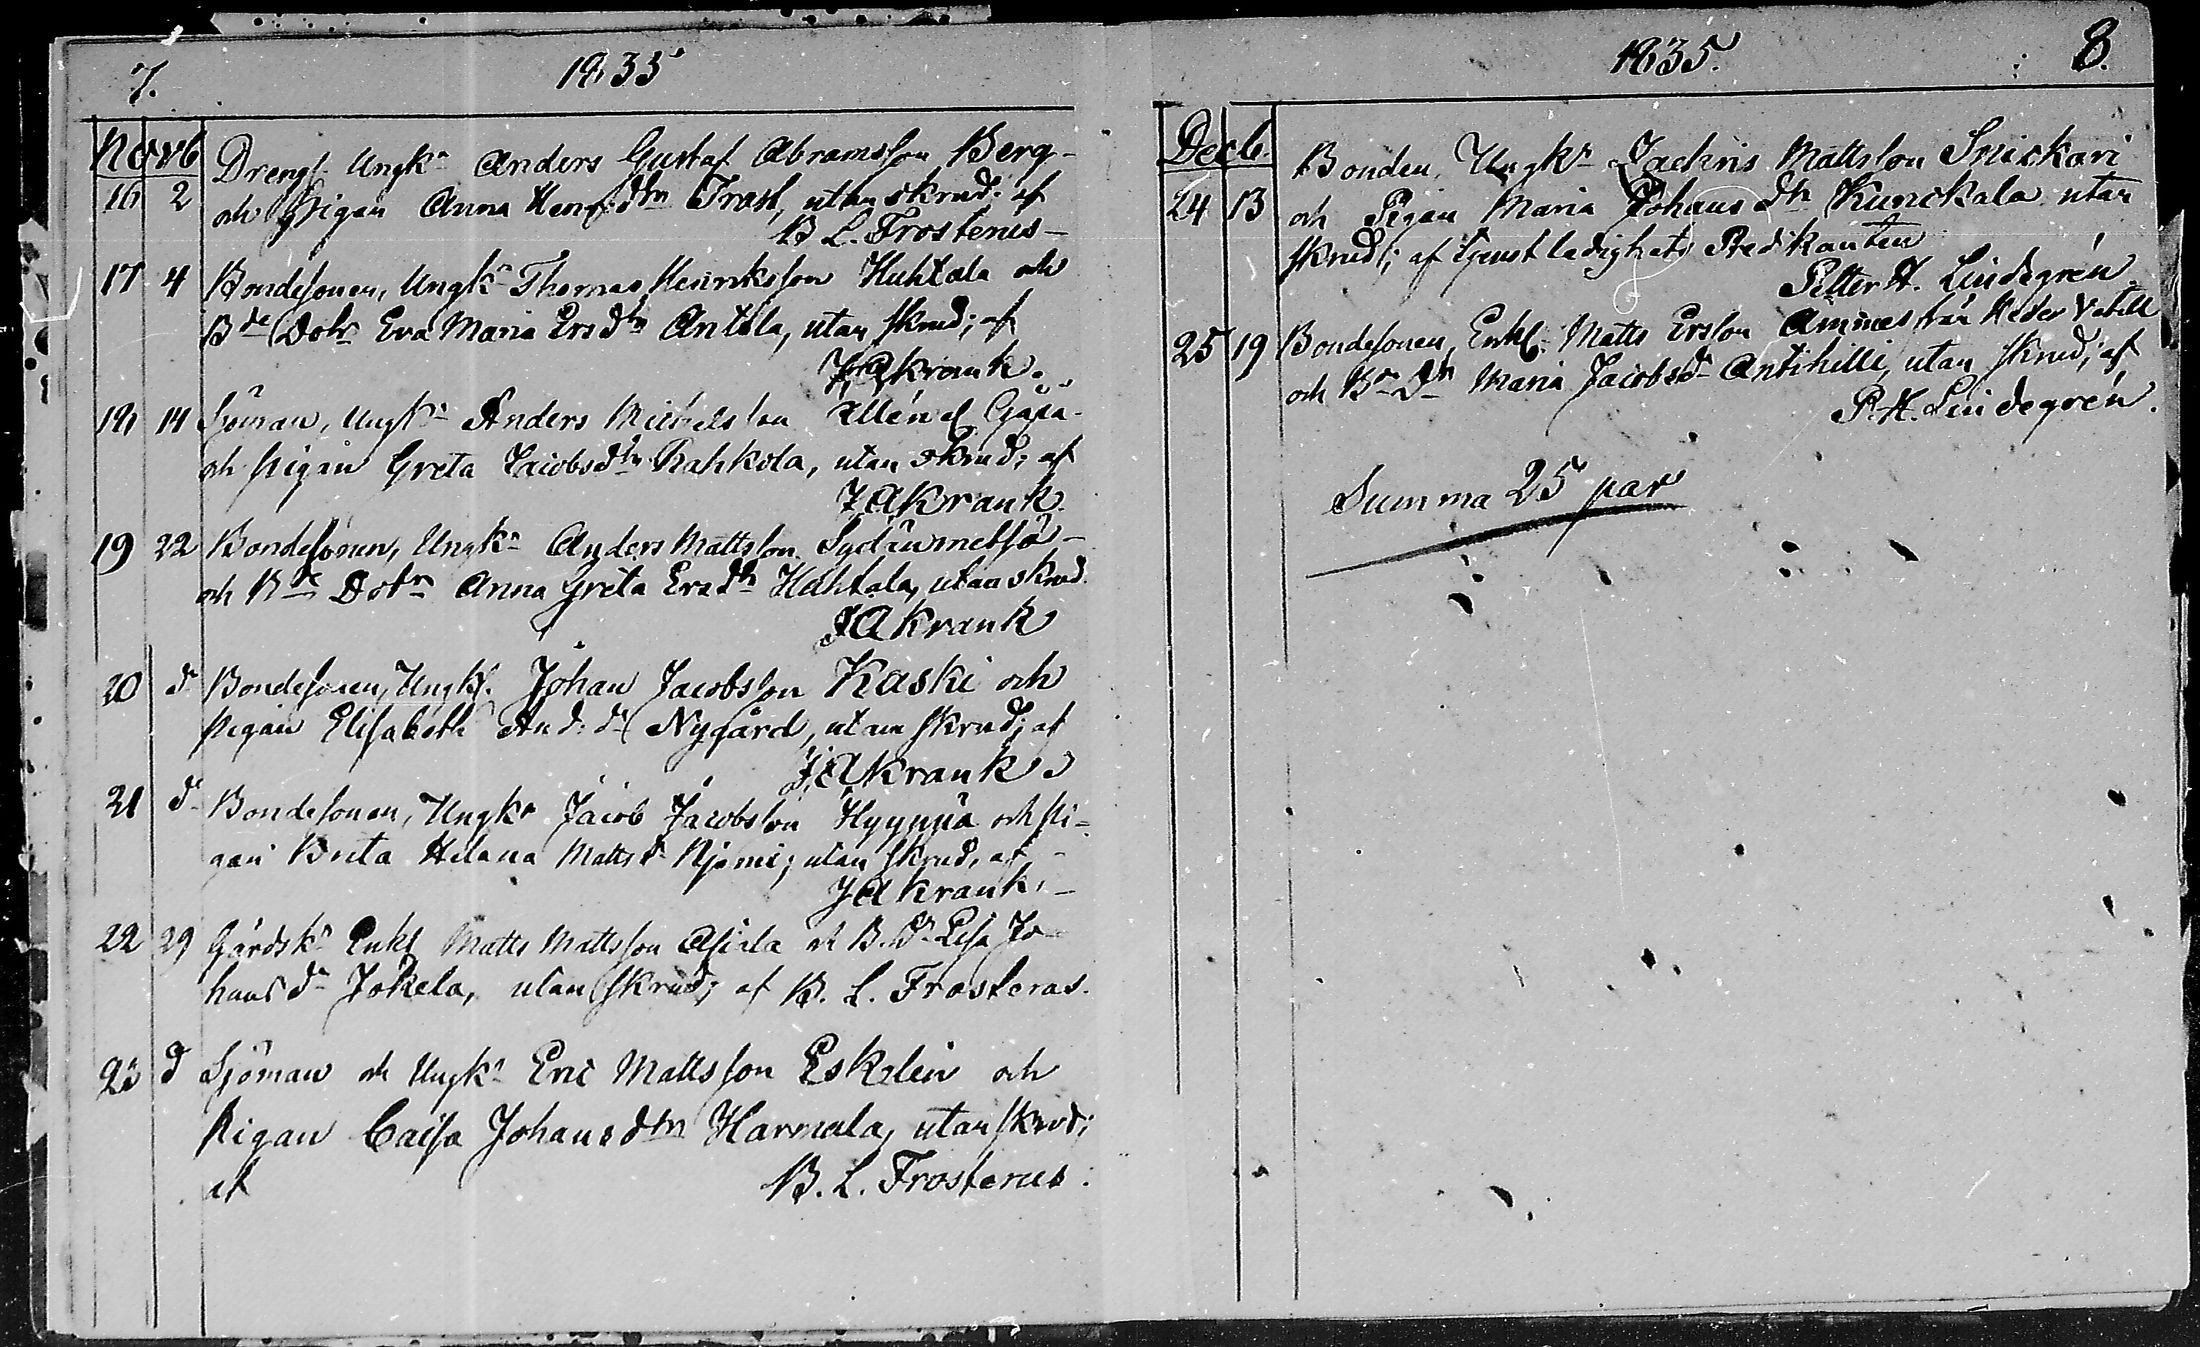 7. 1835
Novb
16 2 Drengs. Ungk:n Anders Gustaf Abramsson Berg-
och Pigan Anna Henr:dtn Trast, utan skrud: af
B L. Frosterus-
17 4 Bondesonen, Ungk:n Thomas Henriksson Huhtala och
B:de Dotr Eva Maria Ersdtn Antila, utan skrud; af
J A Krank.
18 14 Sjöman, Ungk:n Anders Michelsson
och pigan Greta Jacobsdtn Rahkola, utan skrud; af
J A Krank.
19 22 Bondesonen, Ungk:n Anders Mattsson Sydänmetsä-
och B:de Dotrn Anna Greta Ersdtn Huhtala, utan skrud.
J A Krank
20 d:o Bondesonen, Ungk: Johan Jacobsson Kaski och
pigan Elisabeth And:d:r Nygård, utan skrud; af
J A Krank
21 d:o Bondesonen, Ungk:n Jacob Jacobsson Hyyppä och pi-
gan Brita Helena Mattsd:r Njemi; utan skrud, af-
J A Krank.-
22 29 Gårdsk:n Enkl Matts Mattsson och B. D:r Lisa Jo-
hansd:r Jokela, utan skrud; af B. L. Frosterus.
23 d Sjöman och Ungk:n Eric Mattsson Eskelin och
Pigan Caisa Johansdtn Harmala, utan skrud;
af B. L. Frosterus.
1835. 8.
Decb.
24 13 Bonden, Ungk:r Zachris Mattsson Snickari
och Pigan Maria Johansdtr Kunckala utan
skrud; af tjenstledighets Predikanten
Petter H. Lindegrén
25 19 Bondesonen, Enkl: Matts Ersson Ammes från Neder Vetill
och B:n D:n Maria Jacobsd:r Anttihilli, utan skrud; af
P. H. Lindegrén.
Summa 25 par